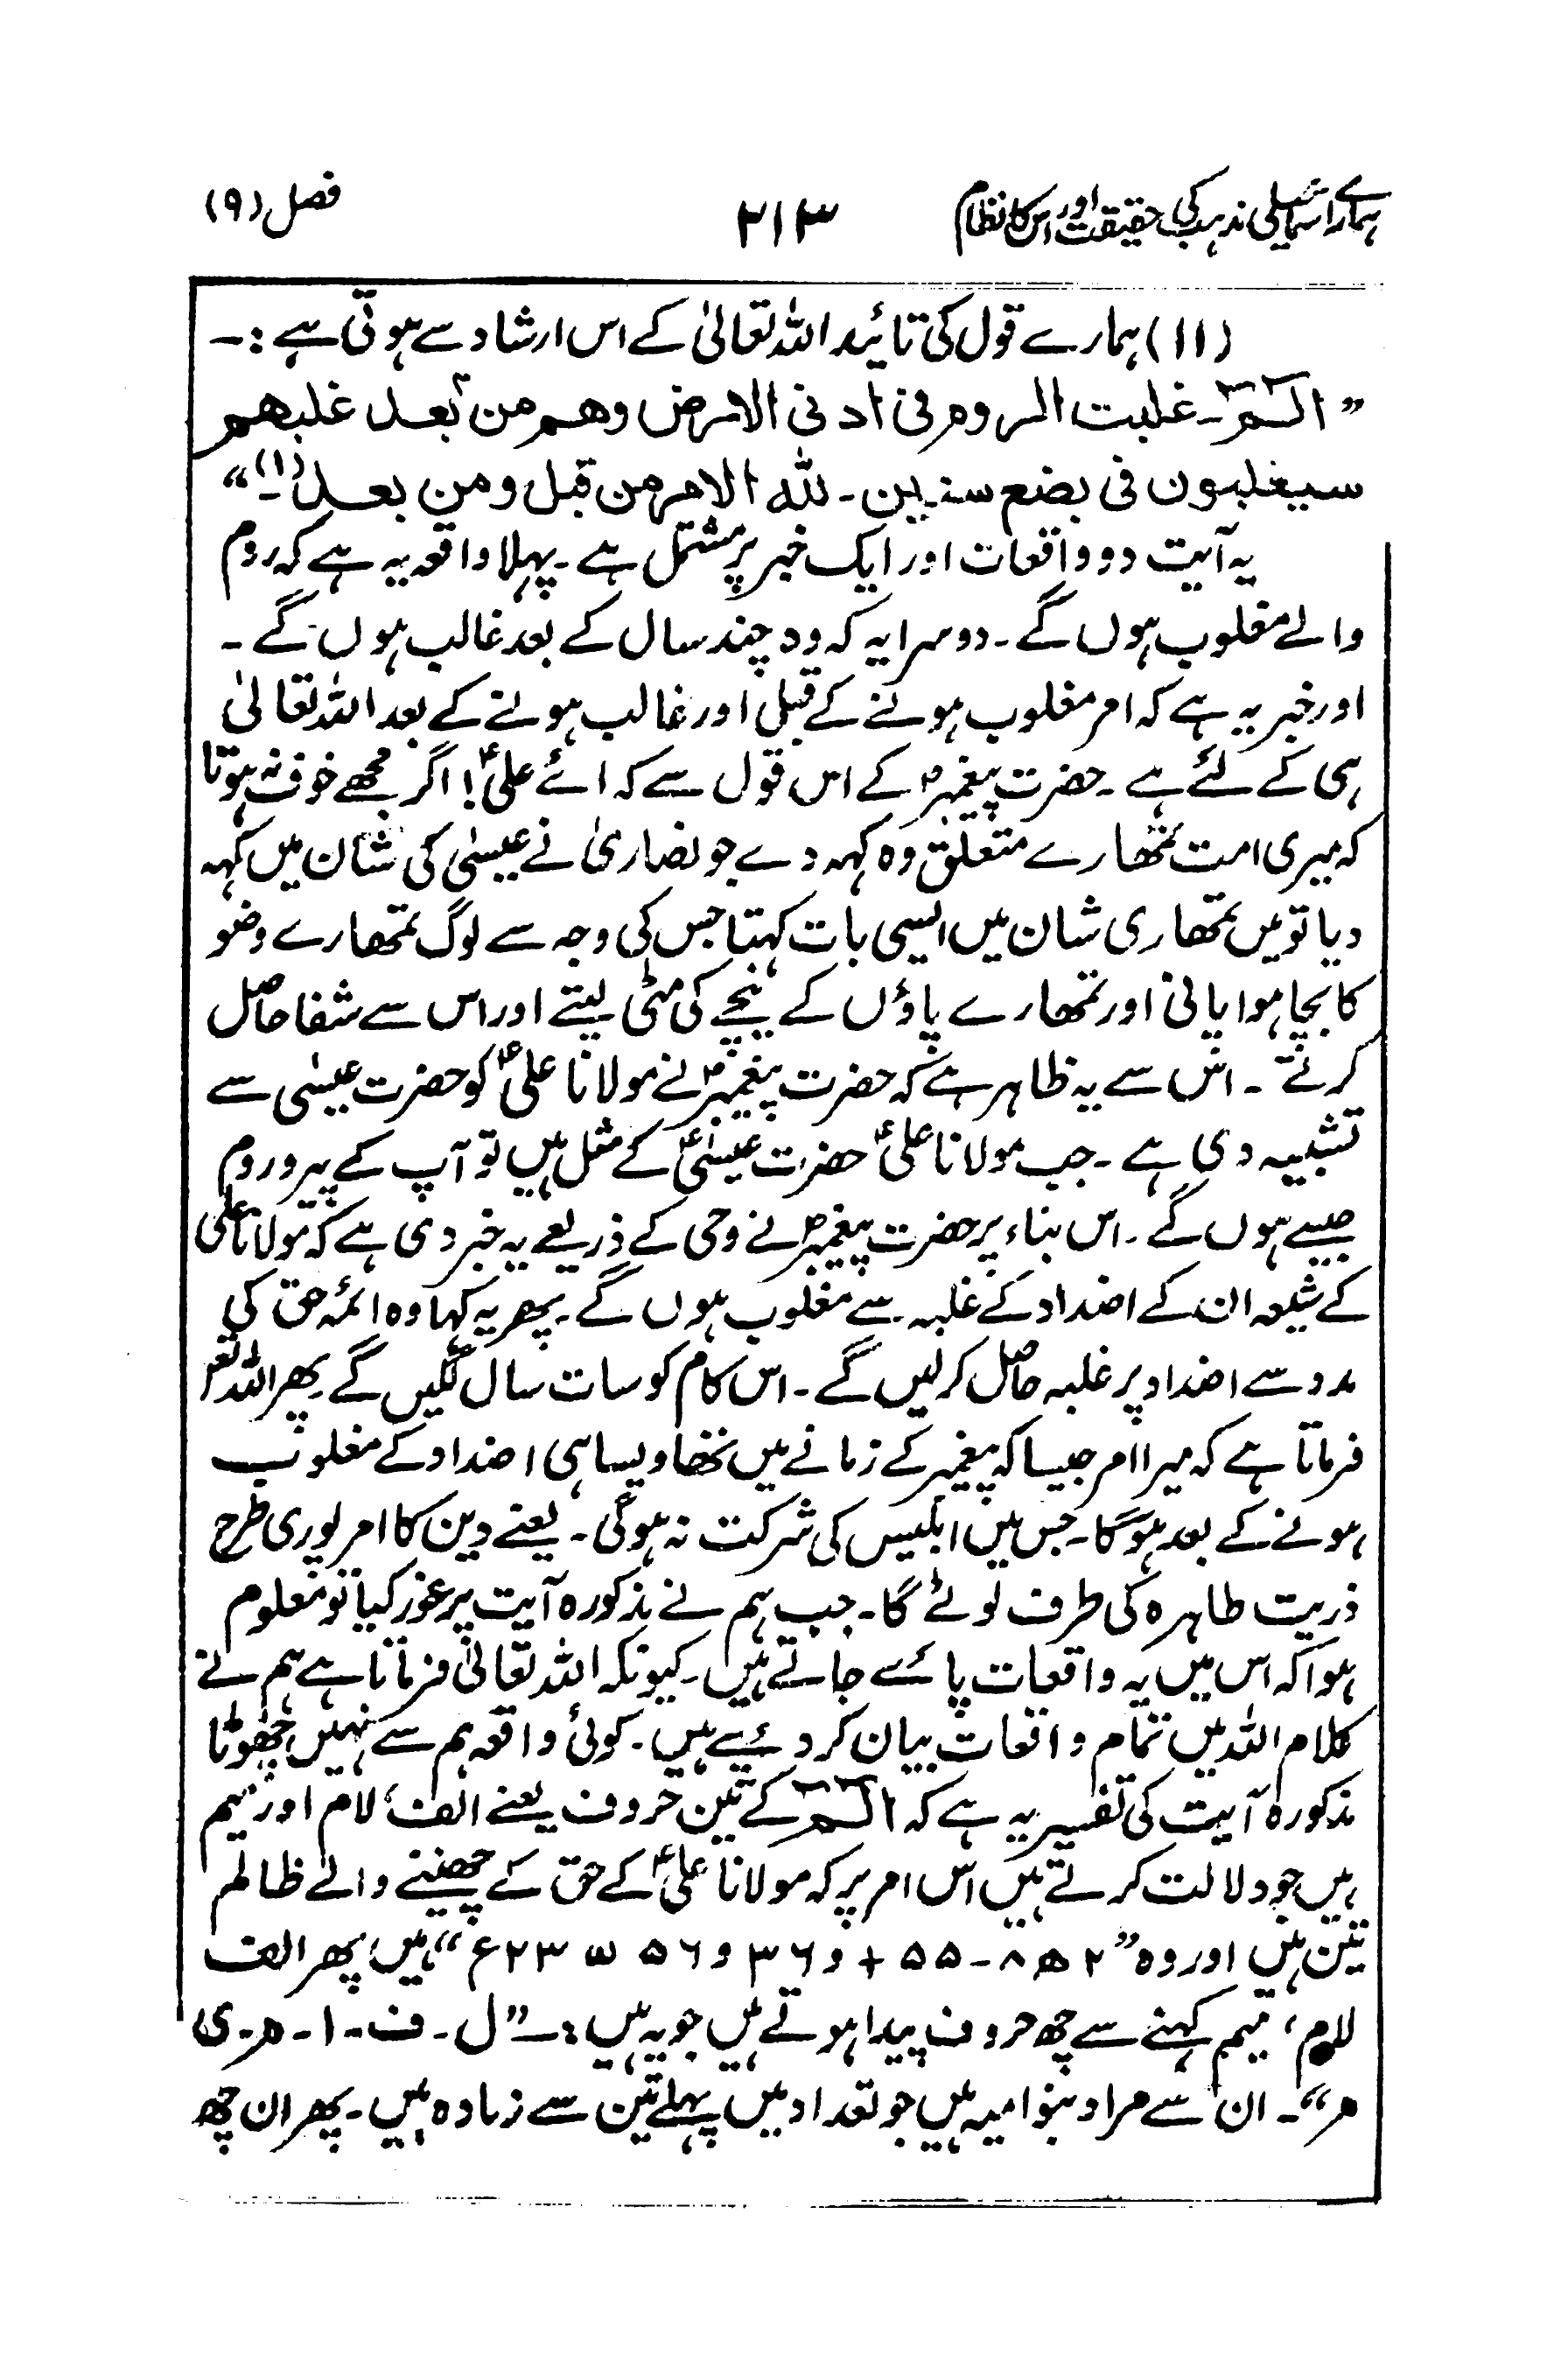 ہمارے اسماعیلی مذہب کی حقیقت اور اس کا نظام ۲۱۳ فصل (۹)
(۱۱) ہمارے قول کی تائید اللہ تعالیٰ کے اس ارشاد سے ہوتی ہے :۔
” الٓمّٓ ۔ غلبت الروم فی ادنی الارض وھم من بعد غلبھم
سیغلبون فی بضع سنین ۔ للہ الامر من قبل ومن بعد (۱)۔“
یہ آیت دو واقعات اور ایک خبر پر مشتمل ہے ۔ پہلا واقعہ یہ ہے کہ روم
والے مغلوب ہوں گے ۔ دوسرا یہ کہ وہ چند سال کے بعد غالب ہوں گے ۔
اور خبر یہ ہے کہ امر مغلوب ہونے کے قبل اور غالب ہونے کے بعد اللہ تعالیٰ
ہی کے لئے ہے ۔ حضرت پیغمبرؐ کے اس قول سے کہ ائے علیؑ ! اگر مجھے خوف نہ ہوتا
کہ میری امت تمھارے متعلق وہ کہہ دے جو نصاریٰ نے عیسیٰ کی شان میں کہہ
دیا تو میں تمھاری شان میں ایسی بات کہتا جس کی وجہ سے لوگ تمھارے وضو
کا بچا ہوا پانی اور تمھارے پاؤں کے نیچے کی مٹی لیتے اور اس سے شفا حاصل
کرتے ۔ اس سے یہ ظاہر ہے کہ حضرت پیغمبرؐ نے مولانا علیؑ کو حضرت عیسیٰ سے
تشبیہ دی ہے ۔ جب مولانا علیؑ حضرت عیسیٰؑ کے مثل ہیں تو آپ کے پیرو روم
جیسے ہوں گے ۔ اس بناء پر حضرت پیغمبرؐ نے وحی کے ذریعے یہ خبر دی ہے کہ مولانا علی
کے شیعہ ان کے اضداد کے غلبہ سے مغلوب ہوں گے ۔ پھر یہ کہا وہ ائمۂ حق کی
مدد سے اضداد پر غلبہ حاصل کر لیں گے ۔ اس کام کو سات سال لگیں گے ۔ پھر اللہ تعٰ
فرماتا ہے کہ میرا امر جیسا کہ پیغمبر کے زمانے میں تھا ویسا ہی اضداد کے مغلوب
ہونے کے بعد ہوگا ۔ جس میں ابلیس کی شرکت نہ ہوگی ۔ یعنے دین کا امر پوری طرح
ذریت طاہرہ کی طرف لوٹے گا ۔ جب ہم نے مذکورہ آیت پر غور کیا تو معلوم
ہوا کہ اس میں یہ واقعات پائے جاتے ہیں ۔ کیونکہ اللہ تعالیٰ فرماتا ہے ہم نے
کلام اللہ میں تمام واقعات بیان کر دئیے ہیں ۔ کوئی واقعہ ہم سے نہیں چھوٹا
مذکورہ آیت کی تفسیر یہ ہے کہ الٓمّٓ کے تین حروف یعنے الف، لام اور میم
ہیں جو دلالت کرتے ہیں اس امر پر کہ مولانا علیؑ کے حق کے چھیننے والے ظالم
تین ہیں اور وہ ” ہیں، پھر الف
لام، میم کہنے سے چھ حروف پیدا ہوتے ہیں جو یہ ہیں :۔ ”ل ۔ ف ۔ ا ۔ م ۔ ی
م“ ۔ ان سے مراد بنو امیہ ہیں جو تعداد میں پہلے تین سے زیادہ ہیں ۔ پھر ان چھ